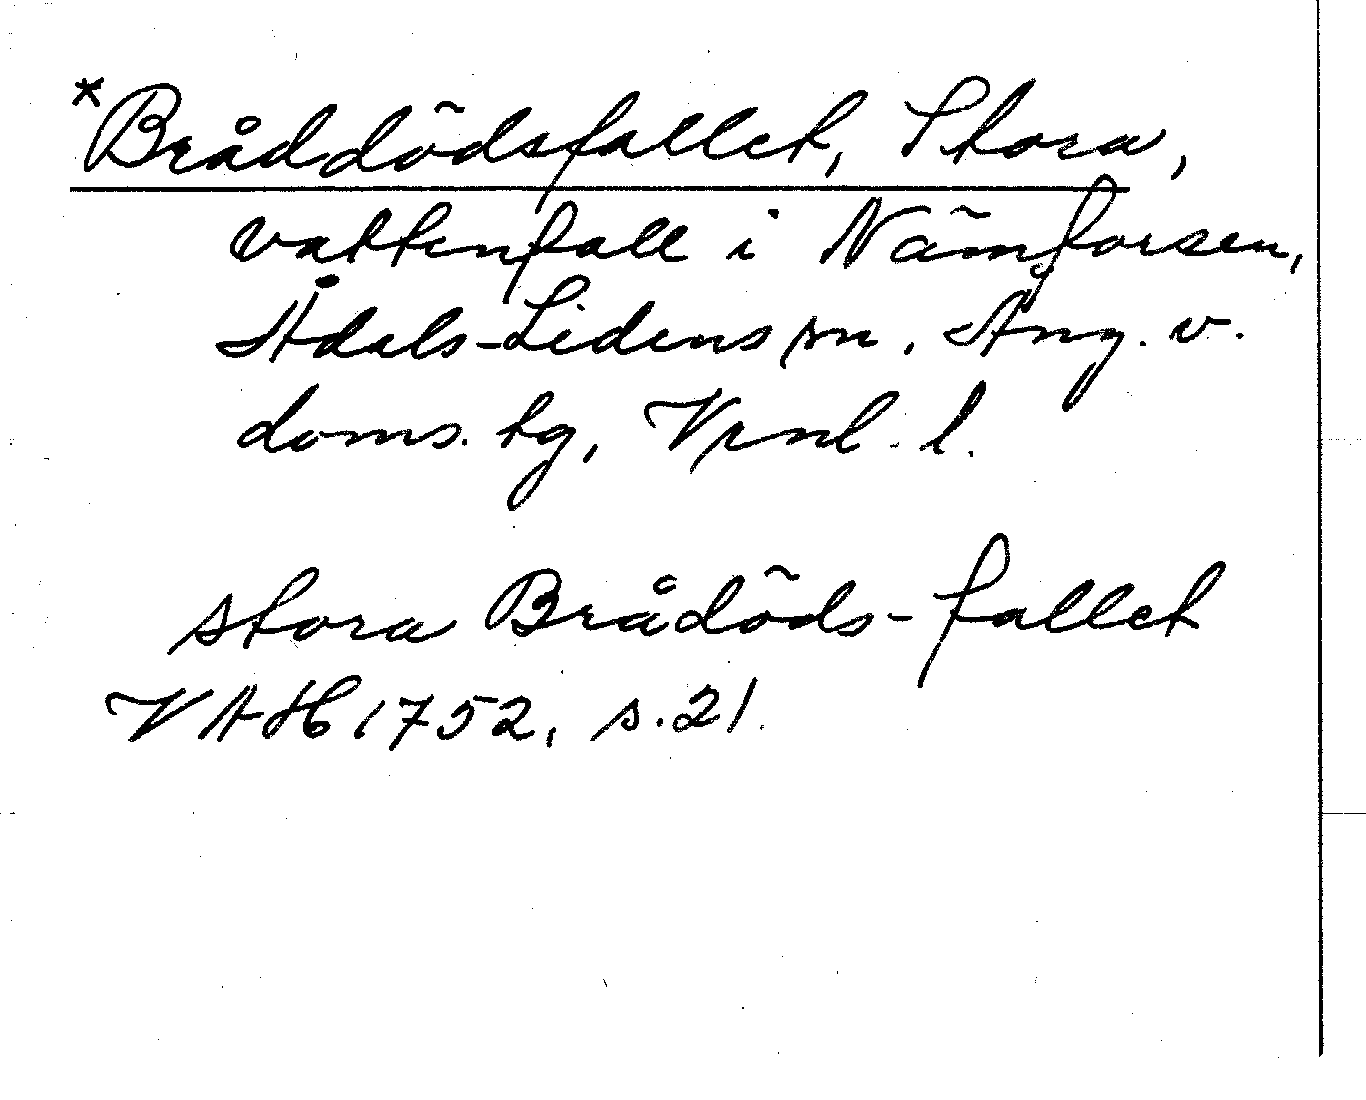 *Bråddödsfallet, Stora,
vattenfall i Nämforsen,
Ådals-Lidens sn, Ång. v.
doms. tg, Vrnl. l.
stora Brådöds-fallet
VAH 1752, s. 21.